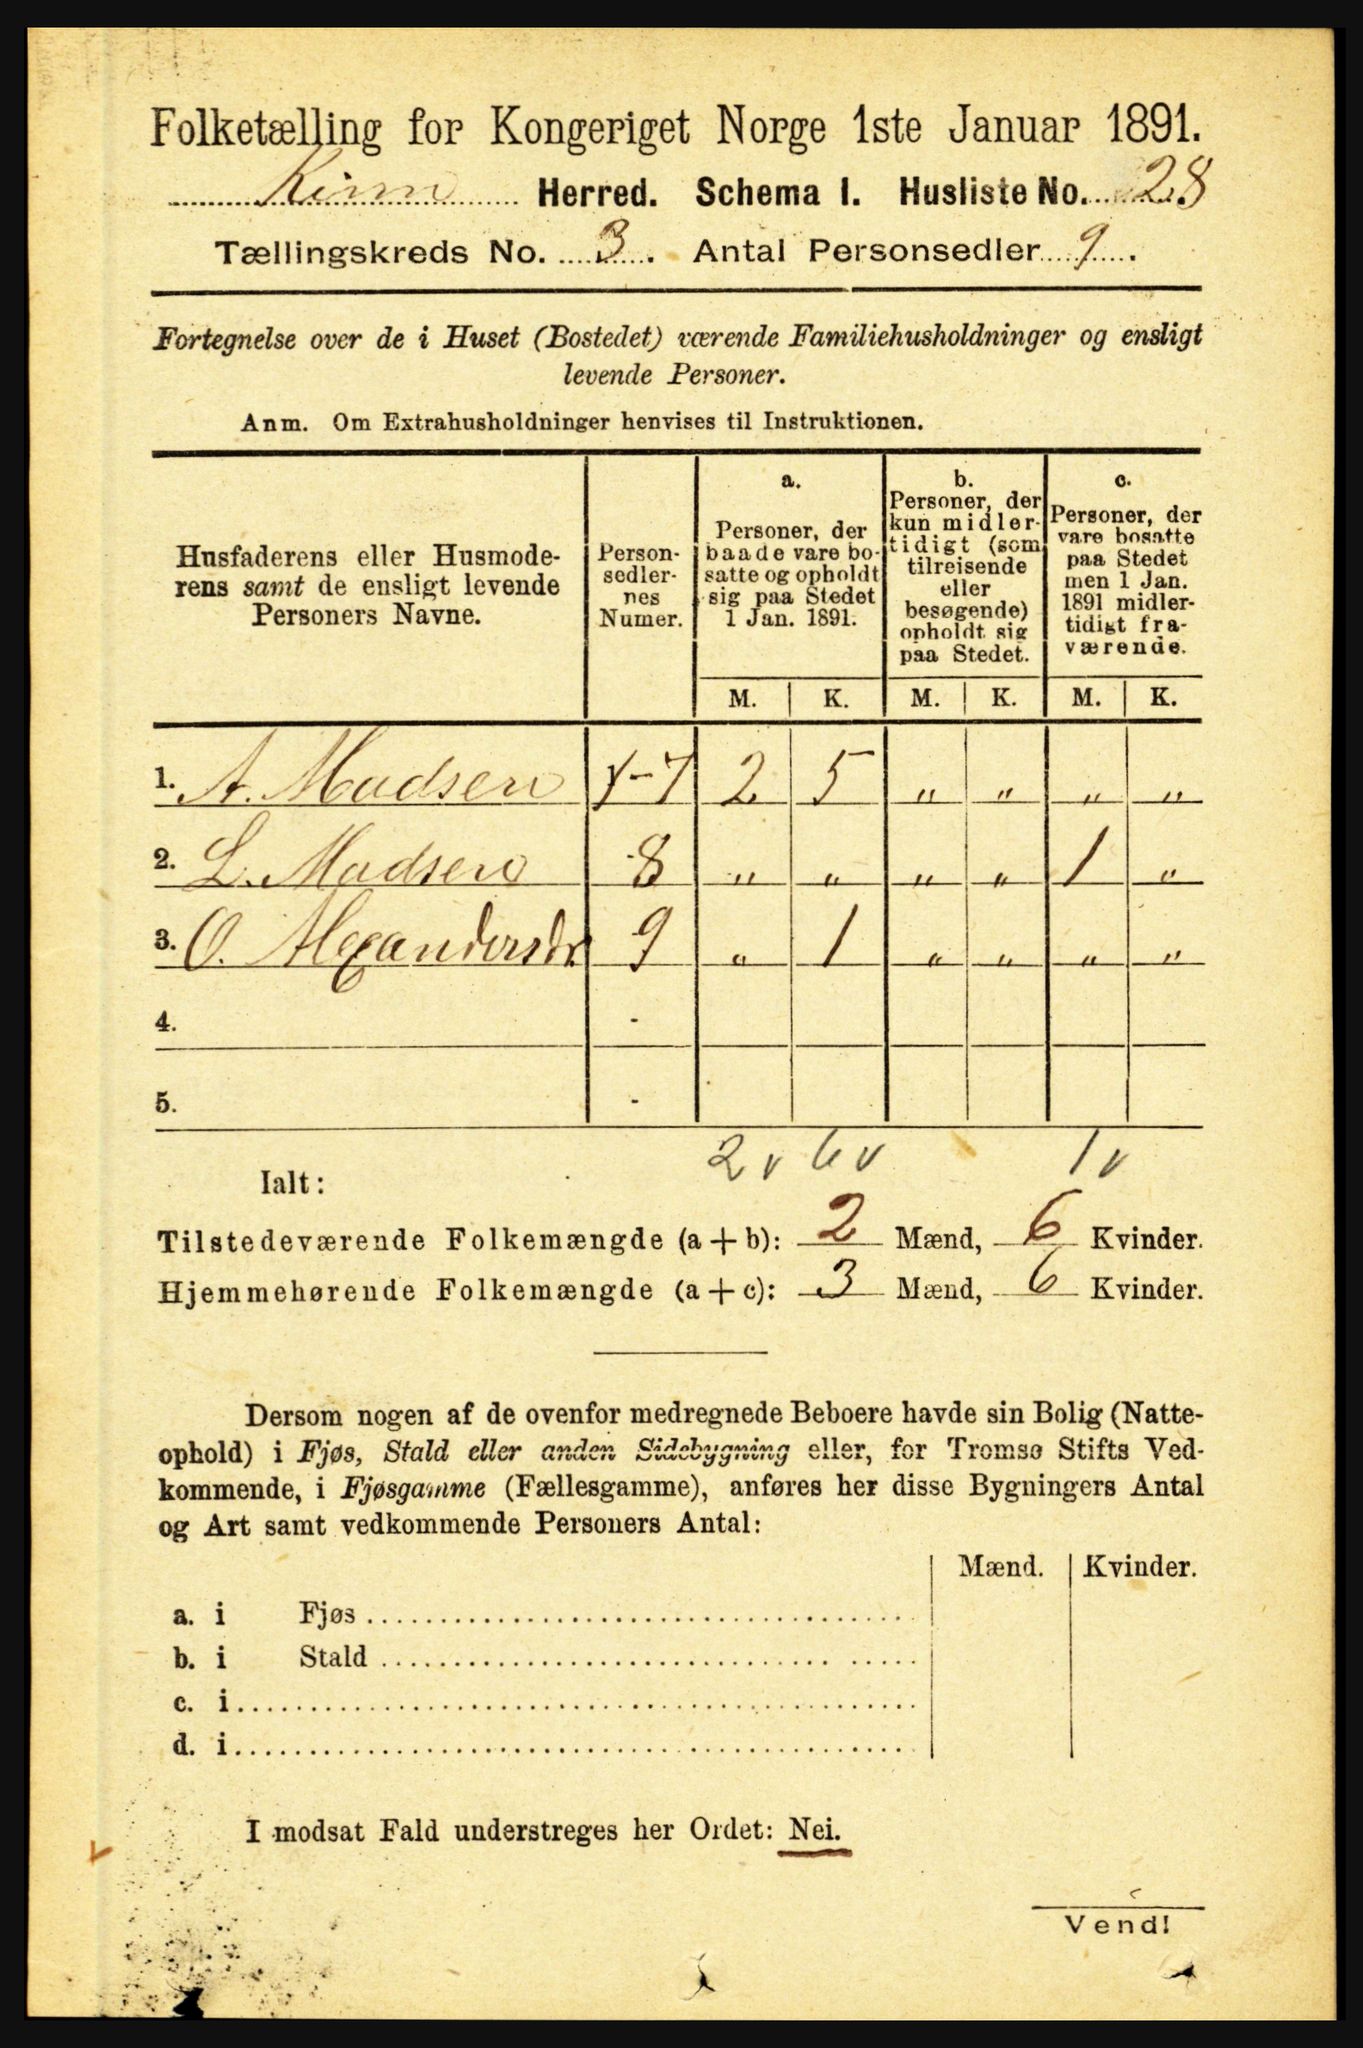 Folketælling for Kongeriget Norge 1ste Januar 1891.
Kinn Herred. Schema I. Husliste No. 28
Tællingskreds No. 3. Antal Personsedler 9.
Fortegnelse over de i Huset (Bostedet) værende Familiehusholdninger og ensligt
levende Personer.
Anm. Om Extrahusholdninger henvises til Instruktionen.
Husfaderens eller Husmode-
rens samt de ensligt levende
Personers Navne.
Person-
sedler-
nes
Numer.
a.
Personer, der
baade vare bo-
satte og opholdt
sig paa Stedet
1 Jan. 1891.
b.
Personer, der
kun midler-
tidigt (som
tilreisende
eller
besøgende)
opholdt sig
paa Stedet.
c.
Personer, der
vare bosatte
paa Stedet
men 1 Jan.
1891 midler-
tidigt fra-
værende.
M. K. M. K. M. K.
1. A. Madsen 1-7 2 5 " " " "
2. L. Madsen 8 " " " " 1 "
3. O. Alexandersdr 9 " 1 " " " "
4. -
5. -
2 v 6 v 1 v
Ialt:
Tilstedeværende Folkemængde (a + b): 2 Mænd, 6 Kvinder.
Hjemmehørende Folkemængde (a + c): 3 Mænd, 6 Kvinder.
Dersom nogen af de ovenfor medregnede Beboere havde sin Bolig (Natte-
ophold) i Fjøs, Stald eller anden Sidebygning eller, for Tromsø Stifts Ved-
kommende, i Fjøsgamme (Fællesgamme), anføres her disse Bygningers Antal
og Art samt vedkommende Personers Antal:
Mænd. Kvinder.
a. i Fjøs
b. i Stald
c. i
d. i
I modsat Fald understreges her Ordet: Nei.
Vend!